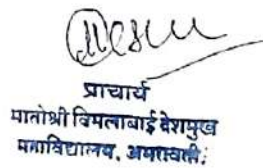 प्राचार्य
मातोश्री विमलाबाई देशमुख
महाविद्यालय, अमरावती.